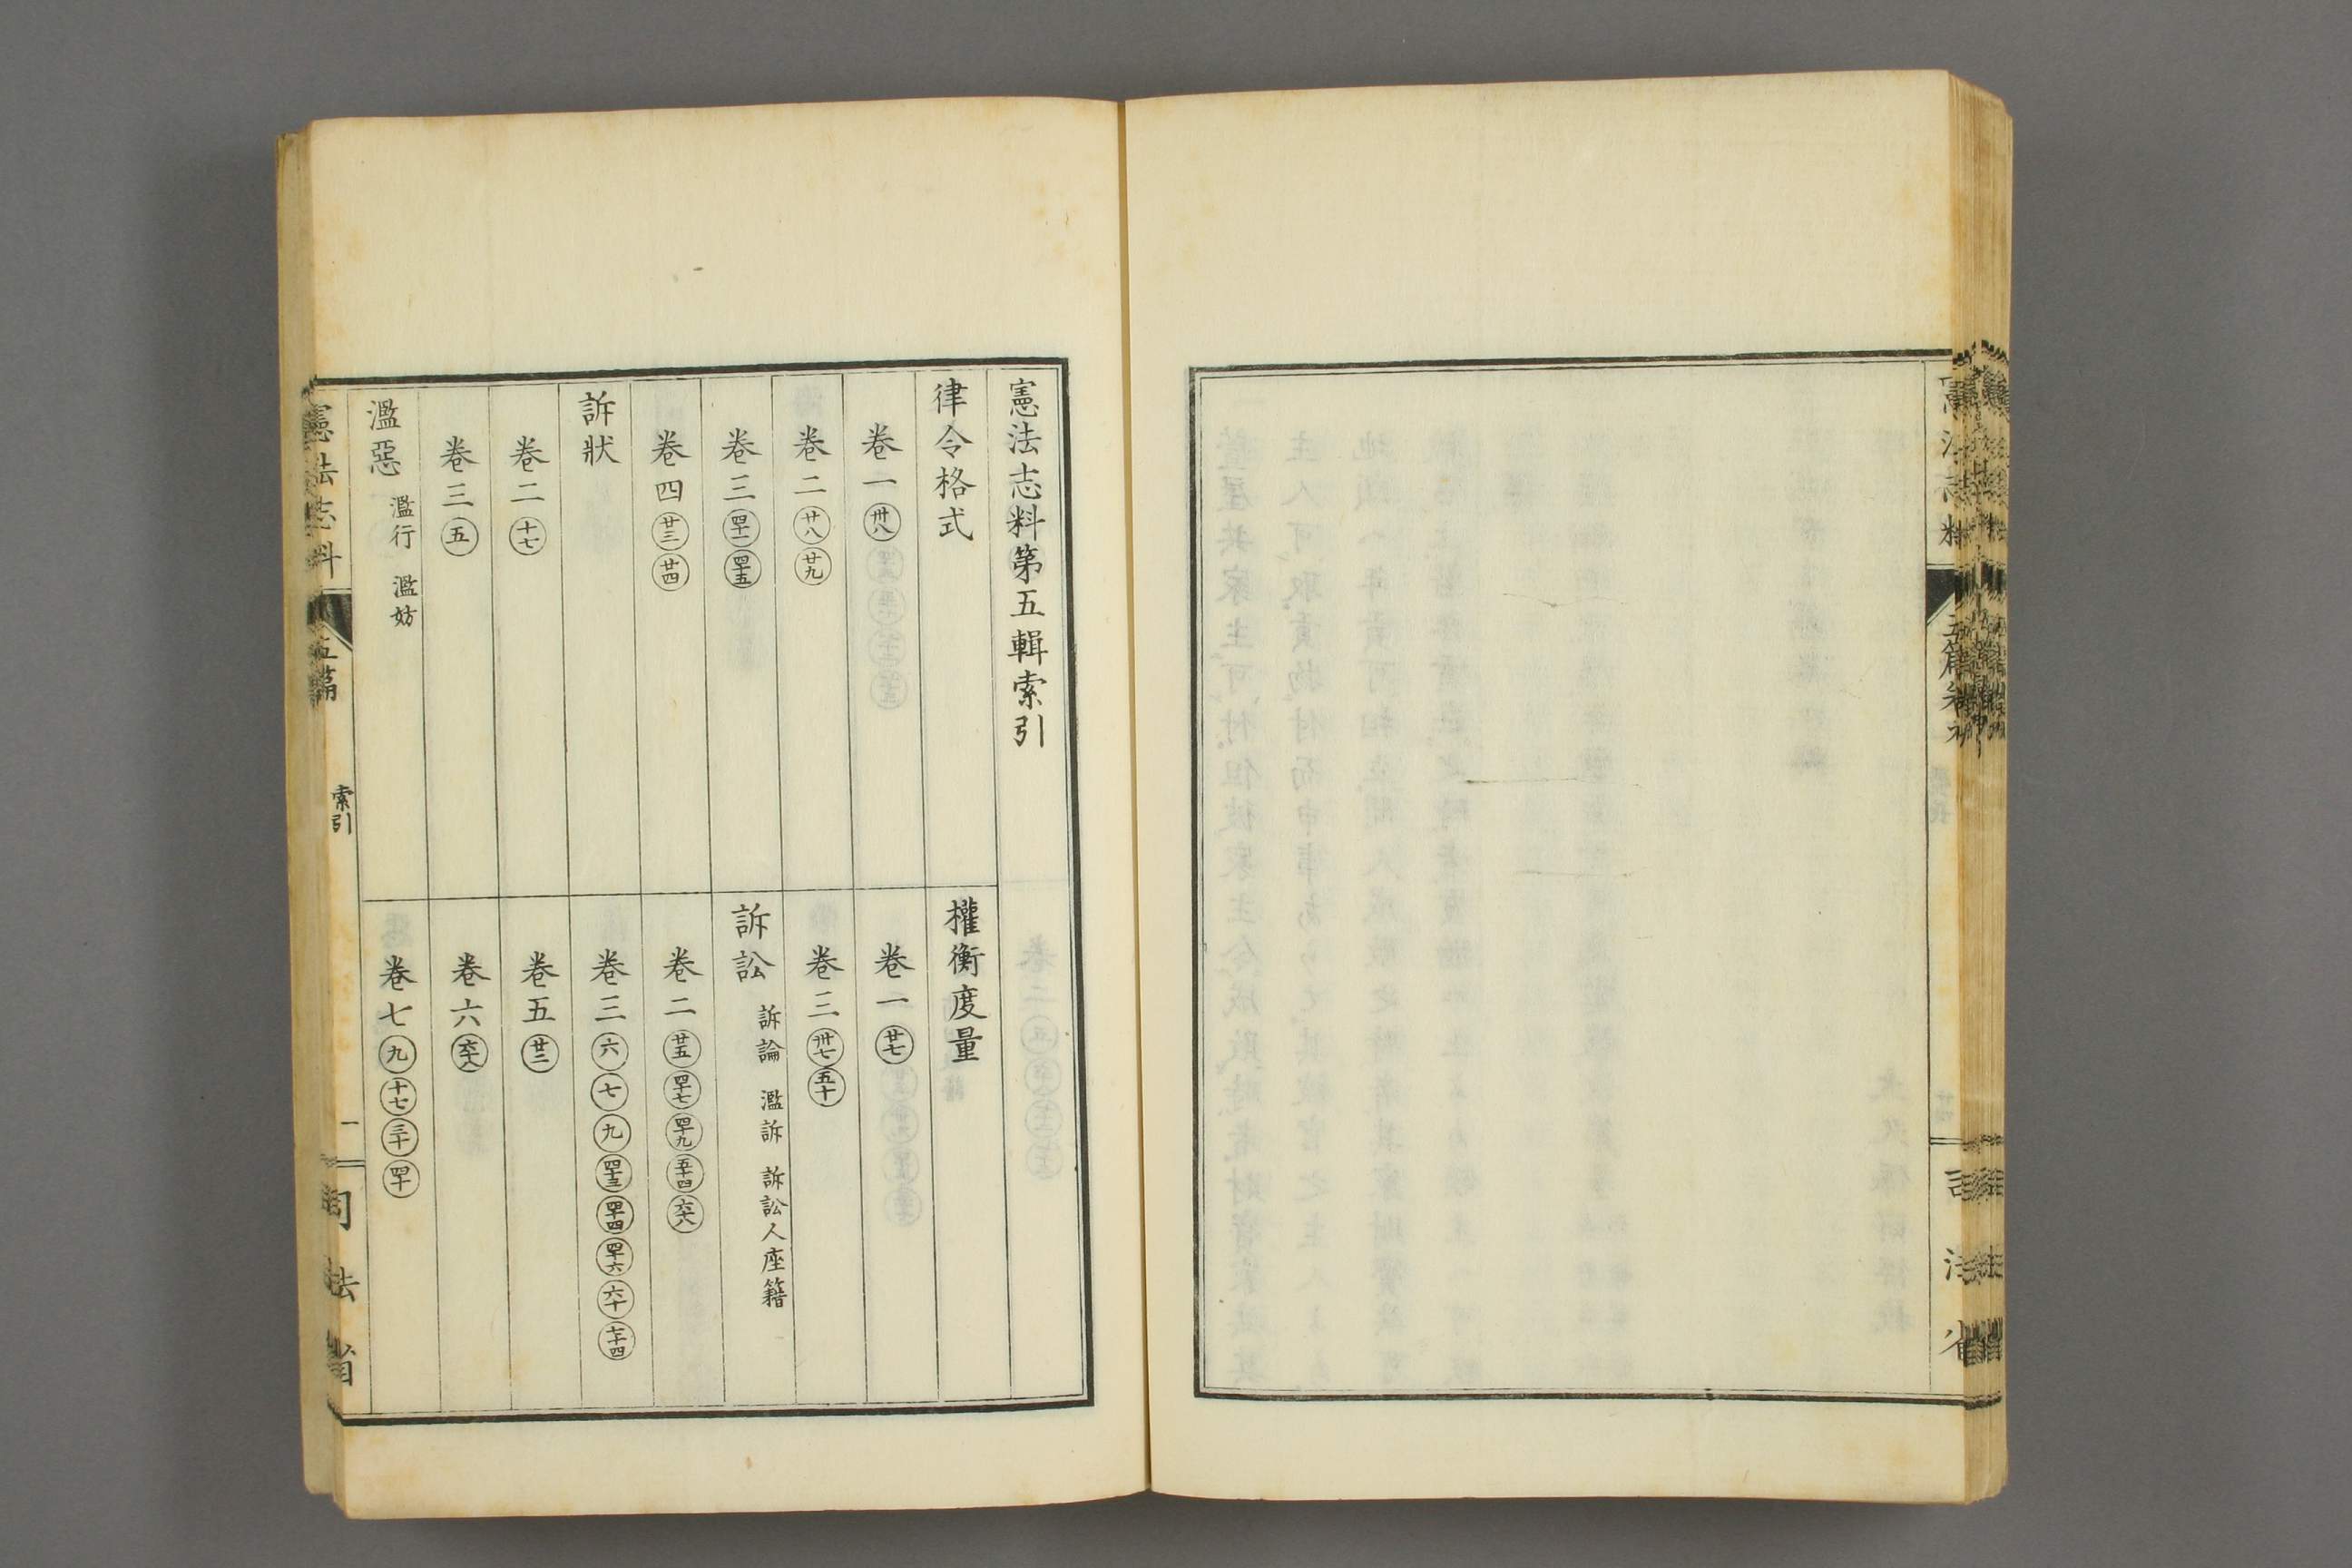 憲法志料第五輯索引
律令格式
卷一 卅八
卷二 廿八 廿九
卷三 四十一 四十五
卷四 廿三 廿四
訴状
卷二 十七
卷三 五
濫惡 濫行 濫妨
權衡度量
卷一 廿七
卷三 卅七 五十
訴訟 訴論 濫訴 訴訟人座籍
卷二 廿五 四十七 四十九 五十四 六十八
卷三 六 七 九 四十三 四十四 四十六 六十 七十四
卷五 廿二
卷六 六十八
卷七 九 十七 三十 四十
憲法志料 五篇 索引 一 司法省